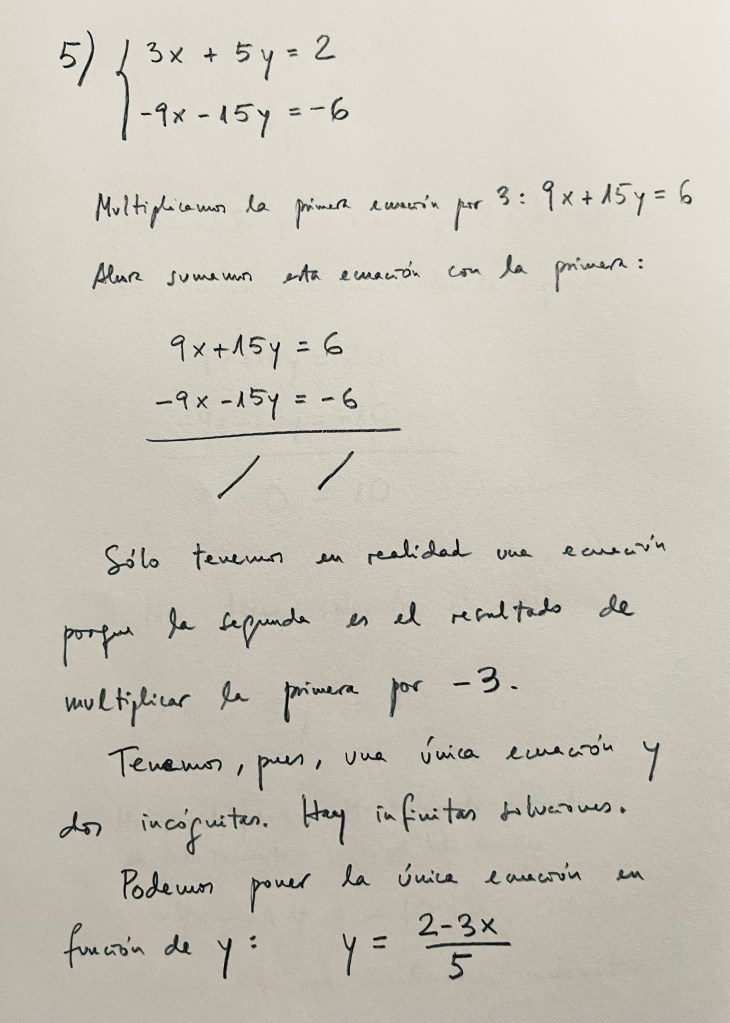 5) { 3x + 5y = 2
-9x - 15y = -6
Multiplicamos la primera ecuación por 3: 9x + 15y = 6
Ahora sumamos esta ecuación con la primera:
9x + 15y = 6
-9x - 15y = -6
/ /
Sólo tenemos en realidad una ecuación
porque la segunda es el resultado de
multiplicar la primera por -3.
Tenemos, pues, una única ecuación y
dos incógnitas. Hay infinitas soluciones.
Podemos poner la única ecuación en
función de y: y = (2-3x)/5